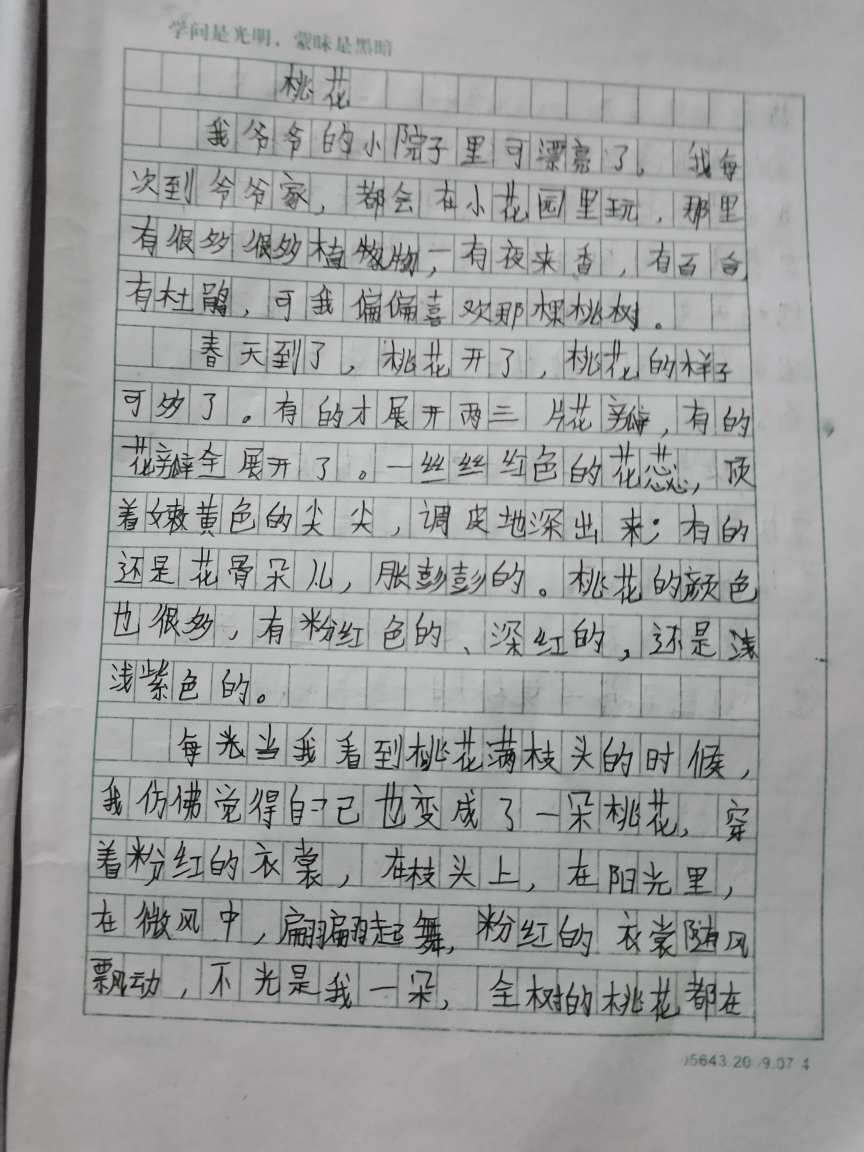 学问是光明，蒙昧是黑暗
桃花
我爷爷的小院子里可漂亮了。我每
次到爷爷家，都会在小花园里玩，那里
有很多很多植物物，有夜来香，有百合
有杜鹃，可我偏偏喜欢那棵桃树。
春天到了，桃花开了，桃花的样子
可多了。有的才展开两三片花瓣，有的
花瓣全展开了。一丝丝红色的花蕊，顶
着嫩黄色的尖尖，调皮地深出来；有的
还是花骨朵儿，胀彭彭的。桃花的颜色
也很多，有粉红色的、深红的，还是浅
浅紫色的。
每当我看到桃花满枝头的时候，
我仿佛觉得自己也变成了一朵桃花，穿
着粉红的衣裳，在枝头上，在阳光里，
在微风中，翩翩起舞，粉红的衣裳随风
飘动，不光是我一朵，全树的桃花都在